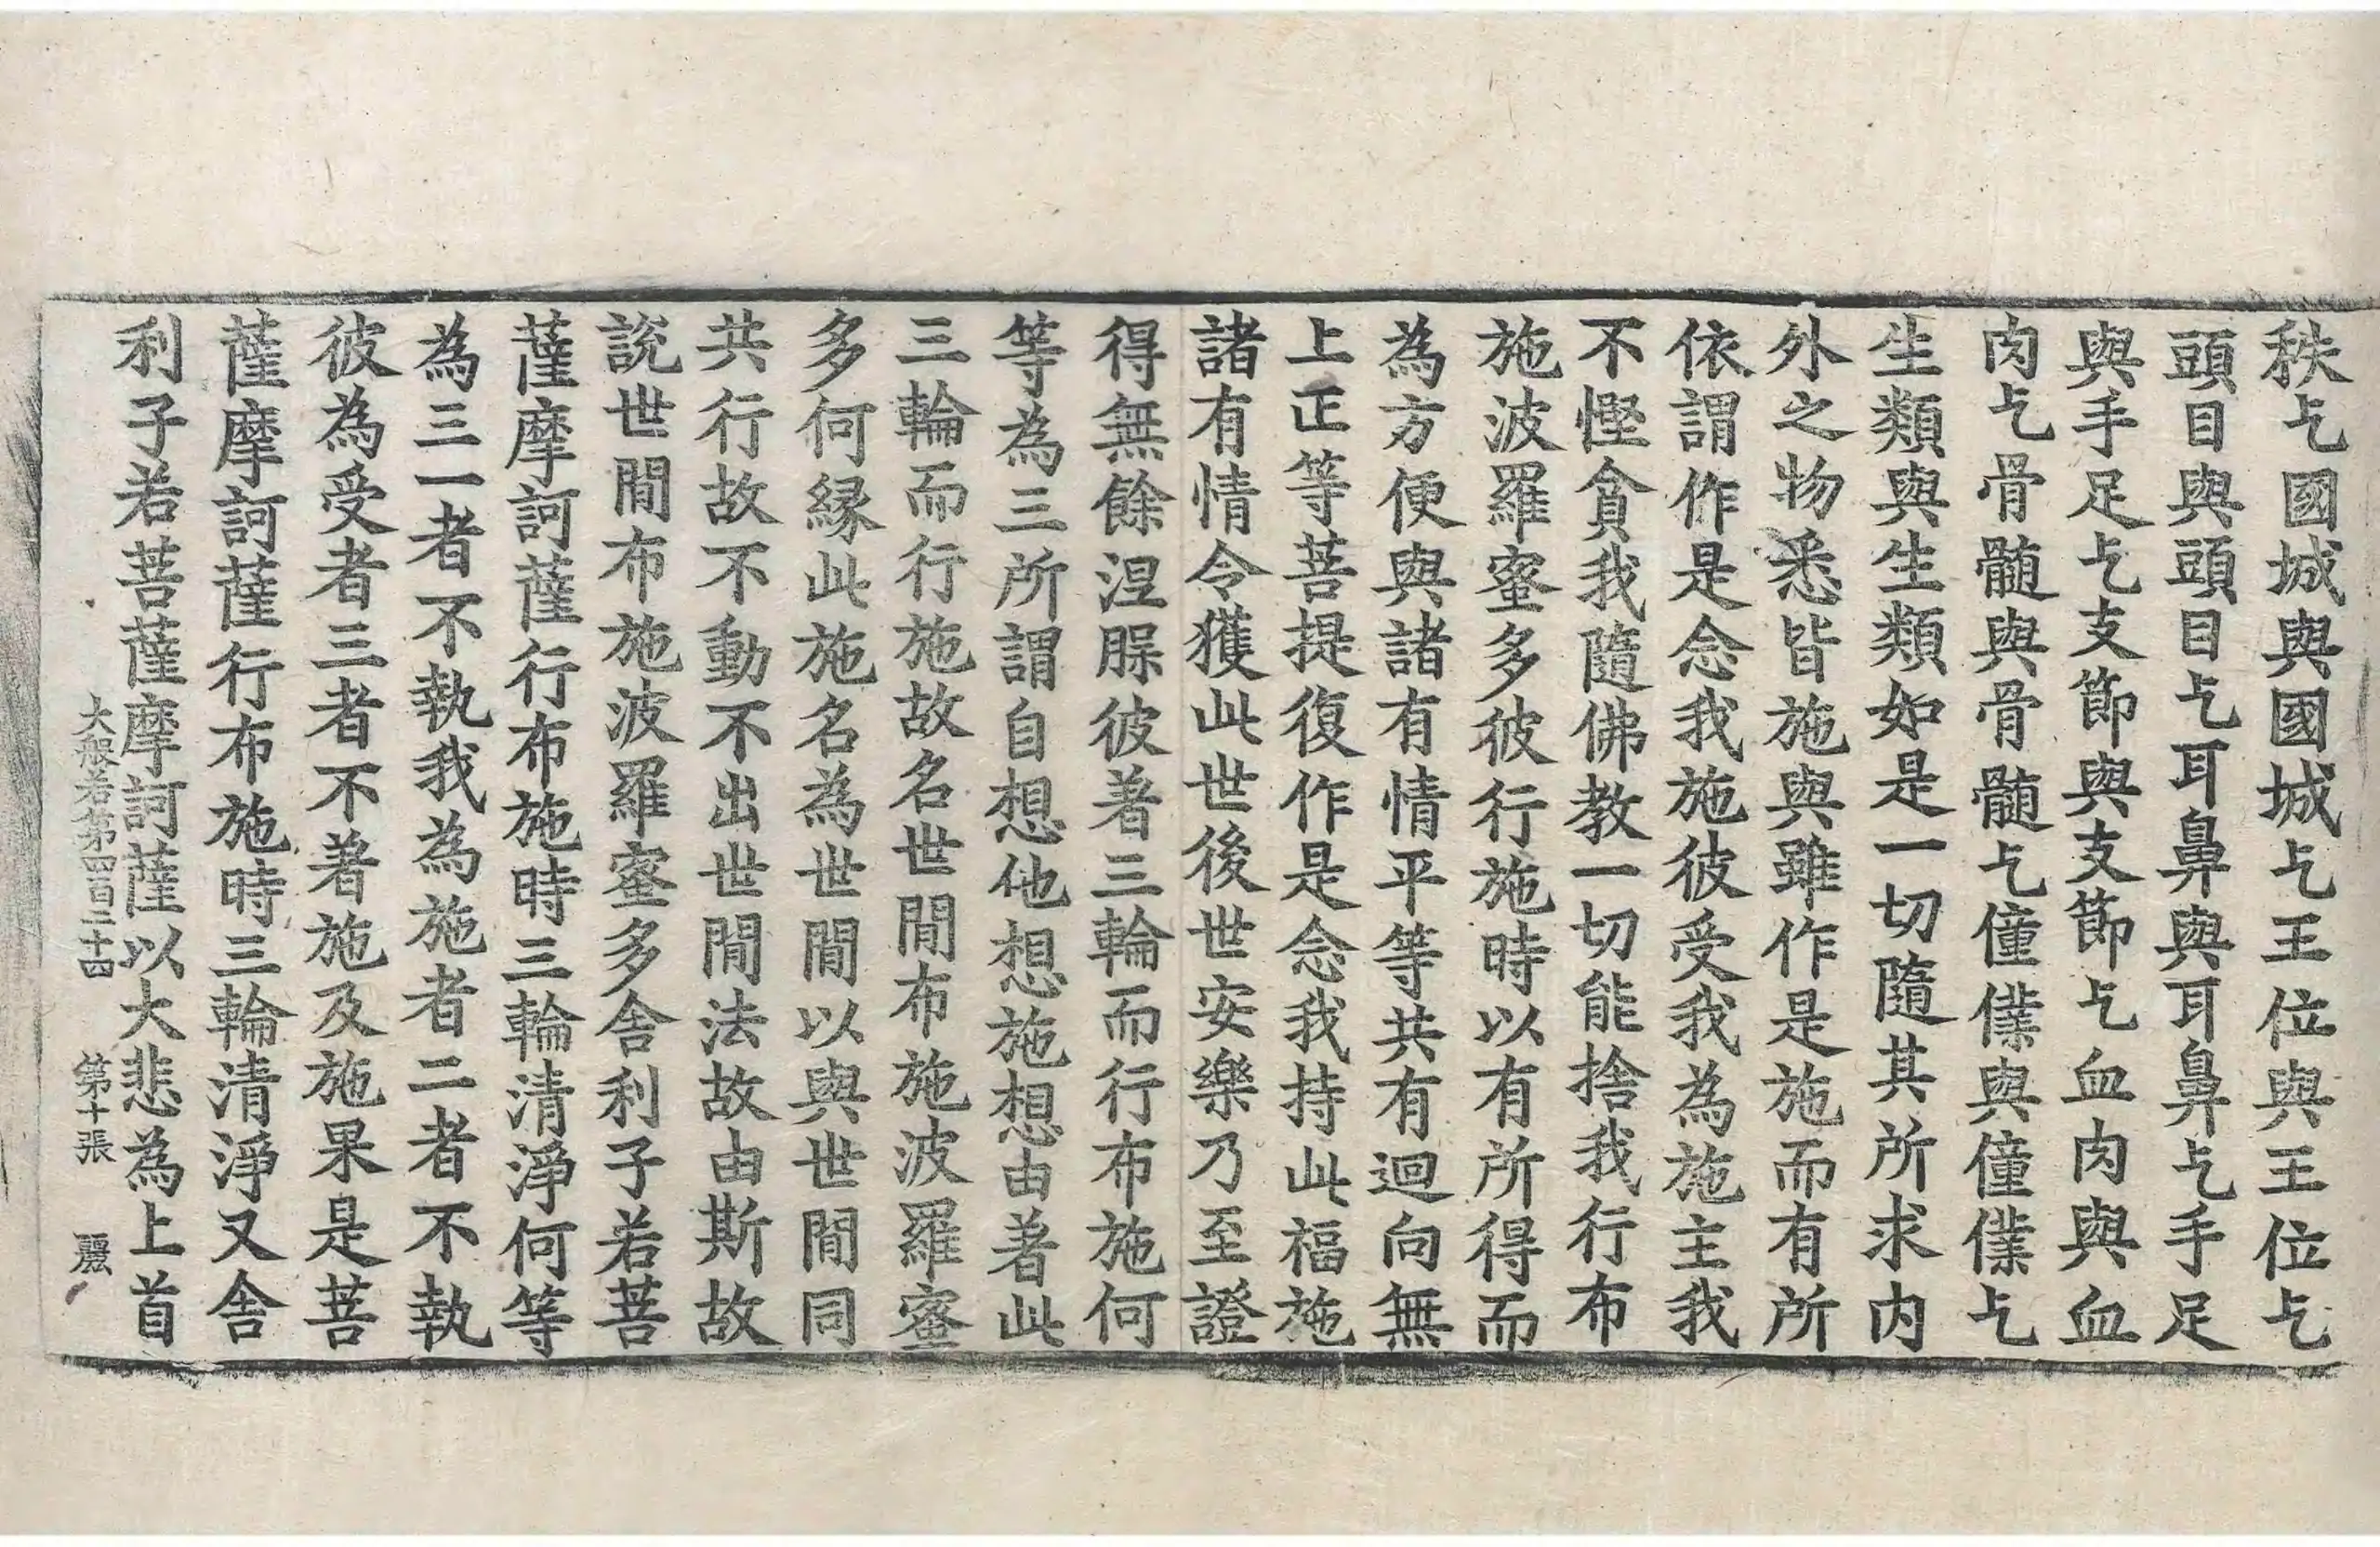 秩乞國城與國城乞王位與王位乞
頭目與頭目乞耳鼻與耳鼻乞手足
與手足乞支節與支節乞血肉與血
肉乞骨髓與骨髓乞僮僕與僮僕乞
生類與生類如是一切隨其所求内
外之物悉皆施與雖作是施而有所
依謂作是念我施彼受我為施主我
不慳貪我隨佛教一切能捨我行布
施波羅蜜多彼行施時以有所得而
為方便與諸有情平等共有迴向無
上正等菩提復作是念我持此福施
諸有情令獲此世後世安樂乃至證
得無餘涅槃彼著三輪而行布施何
等為三所謂自想他想施想由著此
三輪而行施故名世間布施波羅蜜
多何縁此施名為世間以與世間同
共行故不動不出世間法故由斯故
說世間布施波羅蜜多舍利子若菩
薩摩訶薩行布施時三輪清淨何等
為三一者不執我為施者二者不執
彼為受者三者不著施及施果是菩
薩摩訶薩行布施時三輪清淨又舍
利子若菩薩摩訶薩以大悲為上首
大般若第四百二十四 第十張 麗